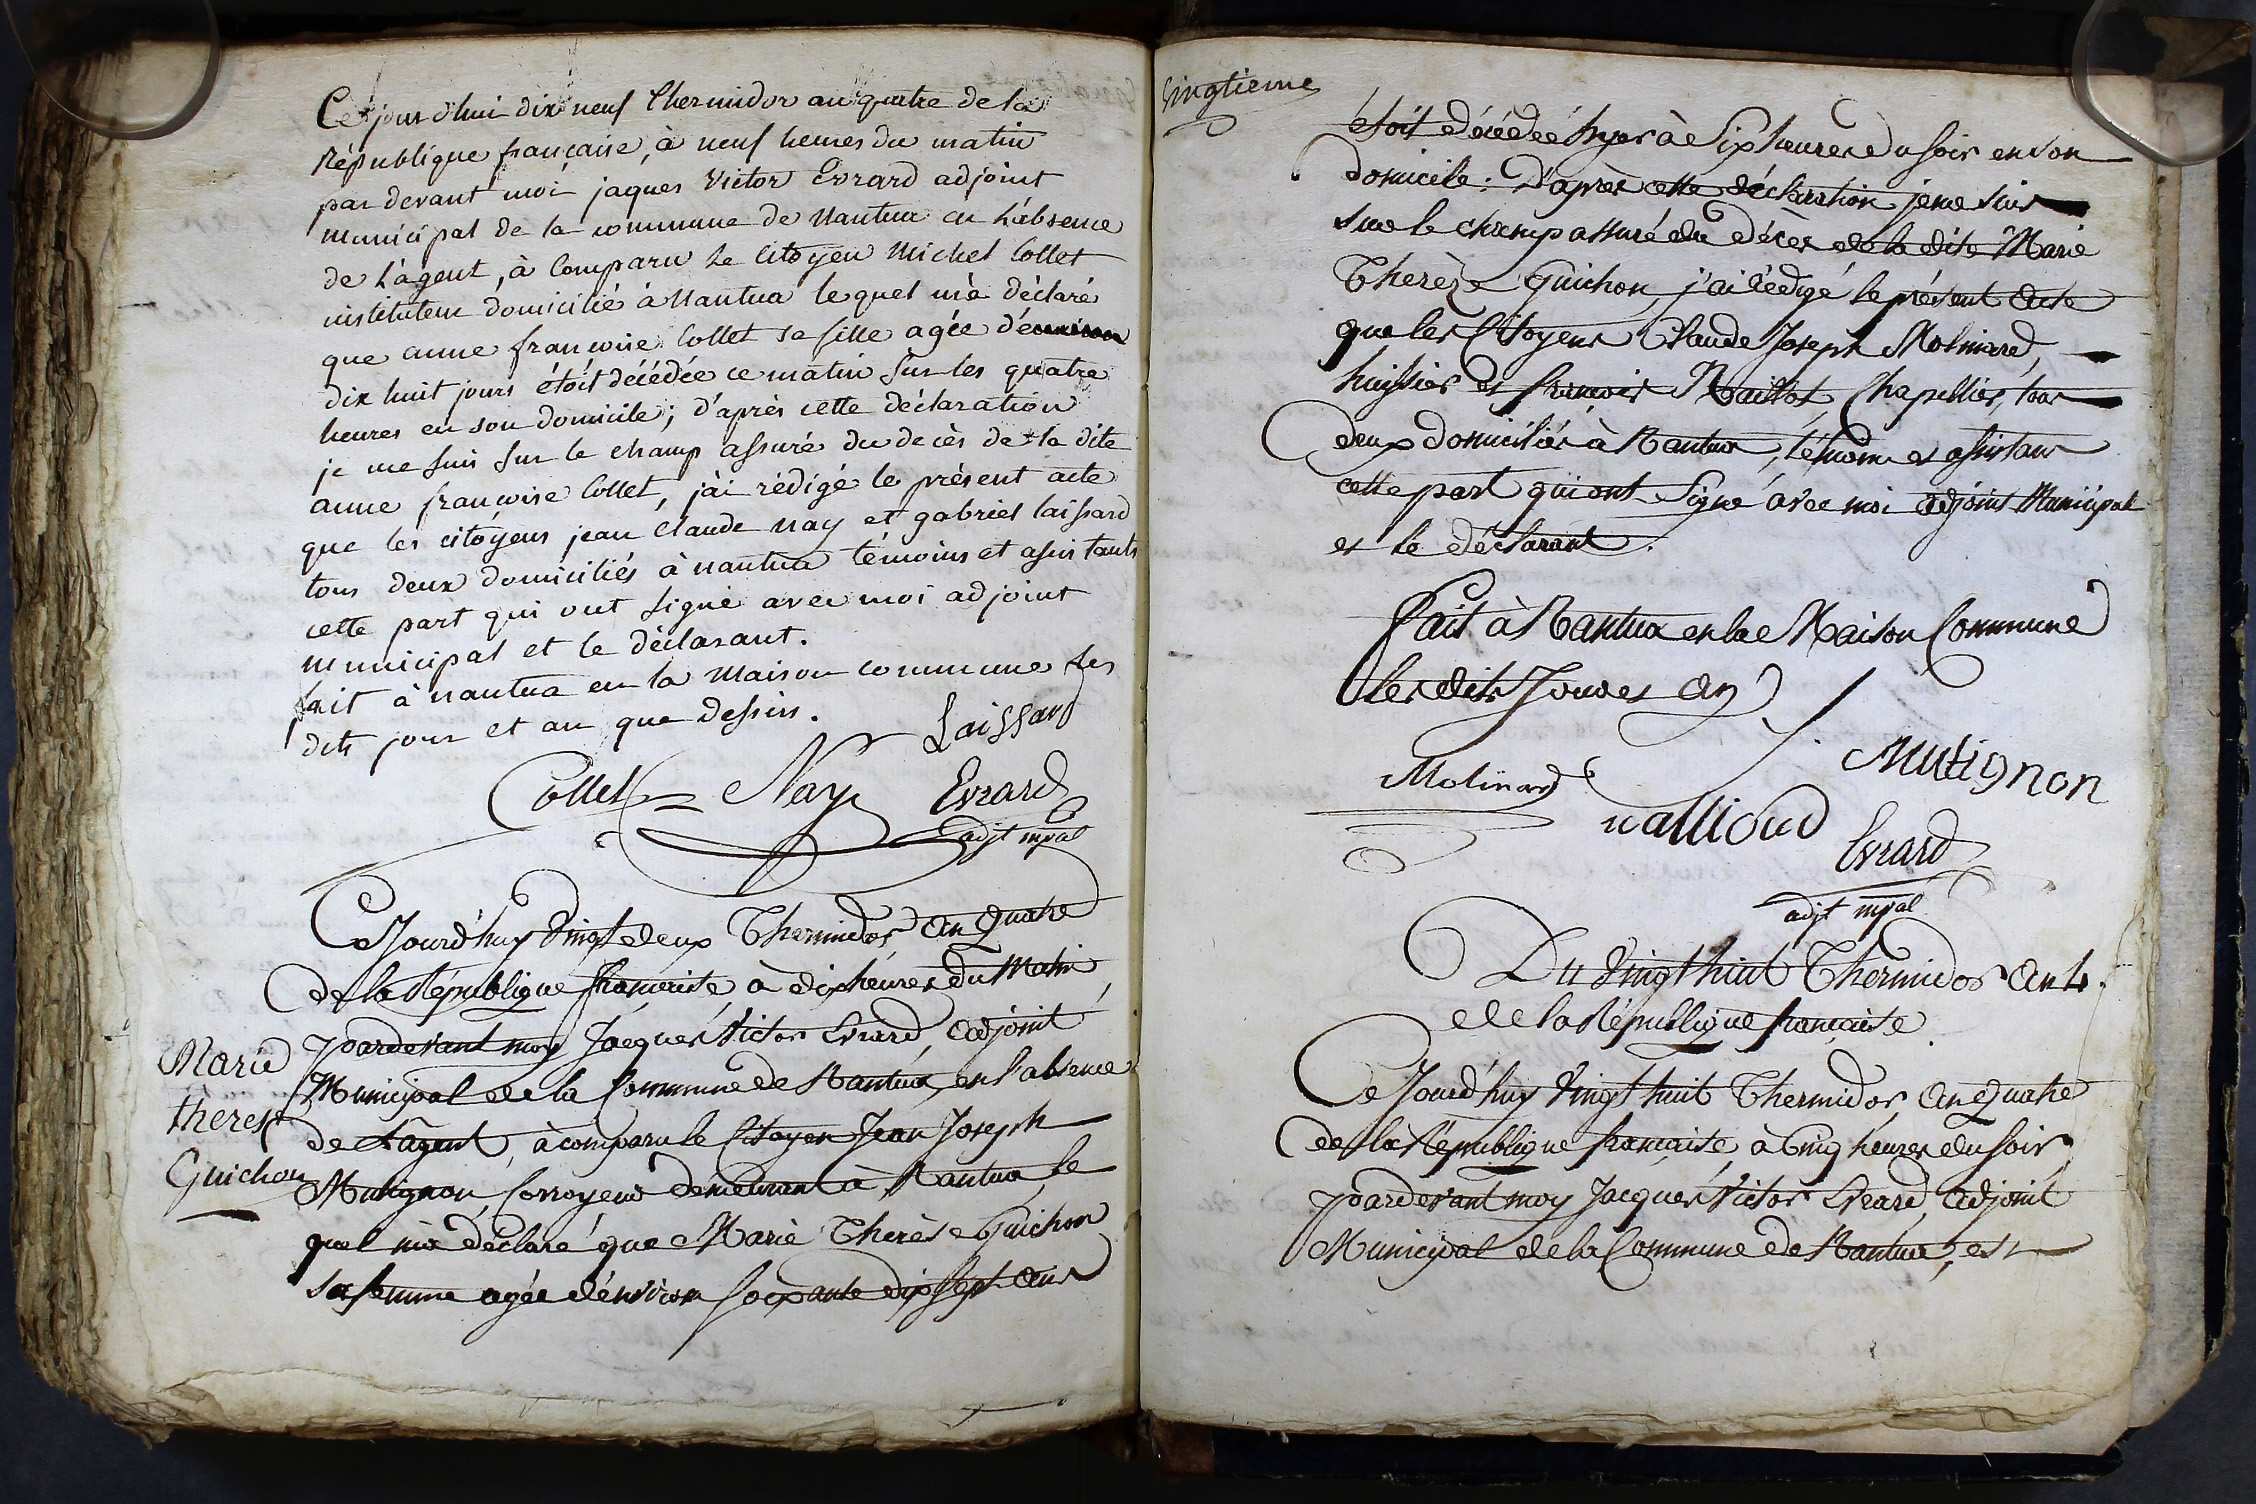 Ce jour d'hui dix neuf thermidor an quatre de la
République française, à neuf heures du matin
par devant moi jaques Victor Evrard adjoint
municipal de la commune de Nantua en L'absence
de L'agent, à Comparu le Citoyen Michel Collet
instituteur domicilié à Nantua lequel m'a déclaré
que anne françoise Collet sa fille agée d'environ
dix huit jours étoit décédée ce matin sur les quatre
heures en son domicile; d'après cette déclaration
je me suis sur le champ assuré du decès de la dite
anne françoise Collet, j'ai rédigé le présent acte
que les citoyens jean Claude Nay et gabriel laissard
tous deux domiciliés à nantua témoins et assistants
cette part qui ont signé avec moi adjoint
municipal et le déclarant.
fait à nantua en la maison commune les
dits jour et an que dessus.
Laissard
Collet Nay Evrard
adjt mpal
Ce Jourd'huy Vingt deux Thermidor an quatre
de la République française à dix heures du Matin
pardevant moy Jacques Victor Evrard, adjoint
Municipal de la Commune de Nantua, en l'absence
de L'agent, à comparu le Citoyen Jean Joseph
Mutignon, Corroyeur demeurant à Nantua, le
quel m'a déclaré que Marie Therèse Guichon
sa femme agée d'environ soixante dix sept ans
Marie
therese
Guichon
Vingtieme
étoit décédée hyer à Six heures du soir en son
domicile: D'après cette déclaration je me suis
sur le champ assuré du décès de la dite Marie
Therèze Guichon, j'ai rédigé le présent acte
que les Citoyens Claude Joseph Molinard,
huissier et françois Nalliod, Chapellier, tous
deux domiciliés à Nantua, témoins et assistans
cette part qui ont Signé avec moi adjoint Municipal
et le déclarant.
Fait à Nantua en la Maison Commune
les dits Jour et an
J. Mutignon
Molinard
nallioud
Evrard
adjt mpal
Du Vingt huit Thermidor an 4.
de la République française.
Ce Jourd'huy Vingt huit Thermidor, an Quatre
de la République française, à Cinq heures du soir
pardevant moy Jacques Victor Evrard, adjoint
Municipal de la Commune de Nantua, est